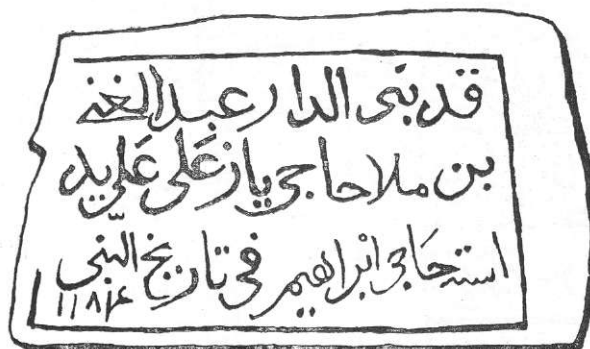 قد بنى الدار عبد الغني
بن ملا حاجي ياز عَلى عَلي يد
استه حَاجي ابراهيم في تاريخ النّبي
١١٨٤